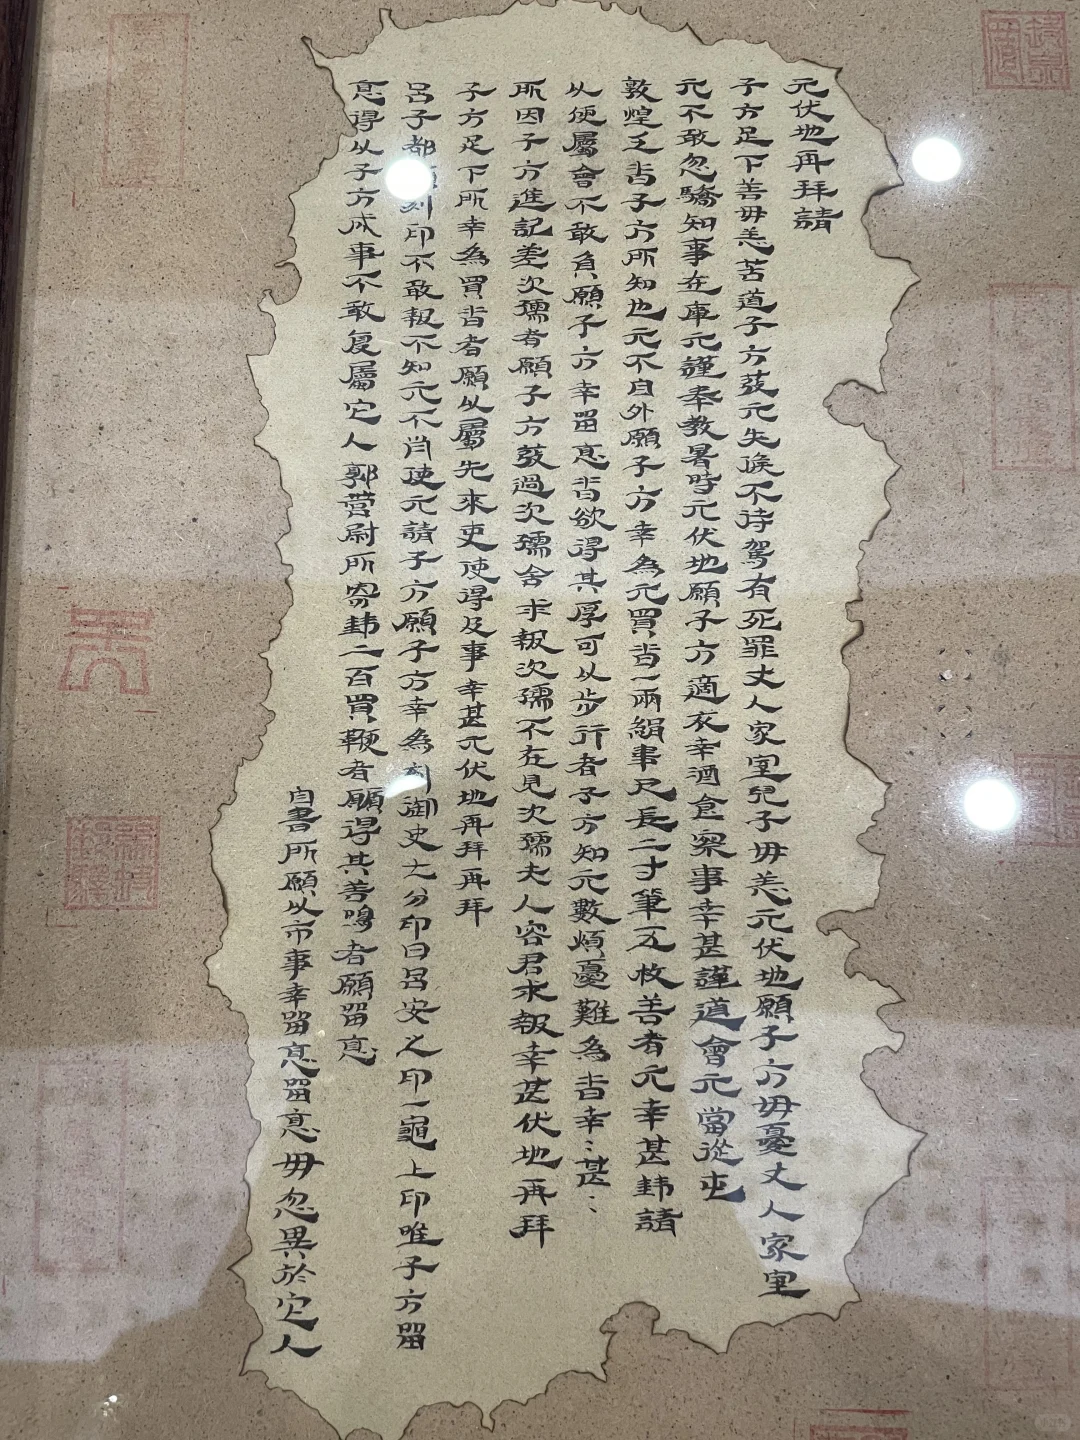 元伏地再拜請
子方足下善毋恙苦道子方發元失候不侍駕有死罪丈人家室兒子毋恙元伏地願子方毋憂丈人家室
元不敢忽驕知事在庫元謹奉教暑時元伏地願子方適衣幸酒食察事幸甚謹道會元當從屯
敦煌乏沓子方所知也元不自外願子方幸為元買沓一兩絹韋尺長二寸筆五枚善者元幸甚錢請
以便屬會不敢負願子方幸留意沓欲得其厚可以步行者子方知元數煩憂難為沓幸:甚:
所因子方進記差次孺者願子方發過次孺舍求報次孺不在見次孺夫人容君求報幸甚伏地再拜
子方足下所幸為買沓者願以屬先來吏使得及事幸甚元伏地再拜再拜
呂子都願刻印不敢報不知元不肖使元請子方願子方幸為刻御史七分印曰呂安之印一龜上印唯子方留
意得以子方成事不敢复屬它人郭營尉所寄錢二百買鞭者願得其善鳴者願留意
自書所願以市事幸留意留意毋忽異於它人